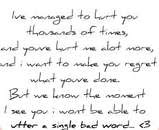 Ive managed to hurt you
thousands of times,
and youve hurt me alot more,
and i want to make you regret
what youve done.
But we know the moment
I see you i wont be able to
utter a single bad word.. <3